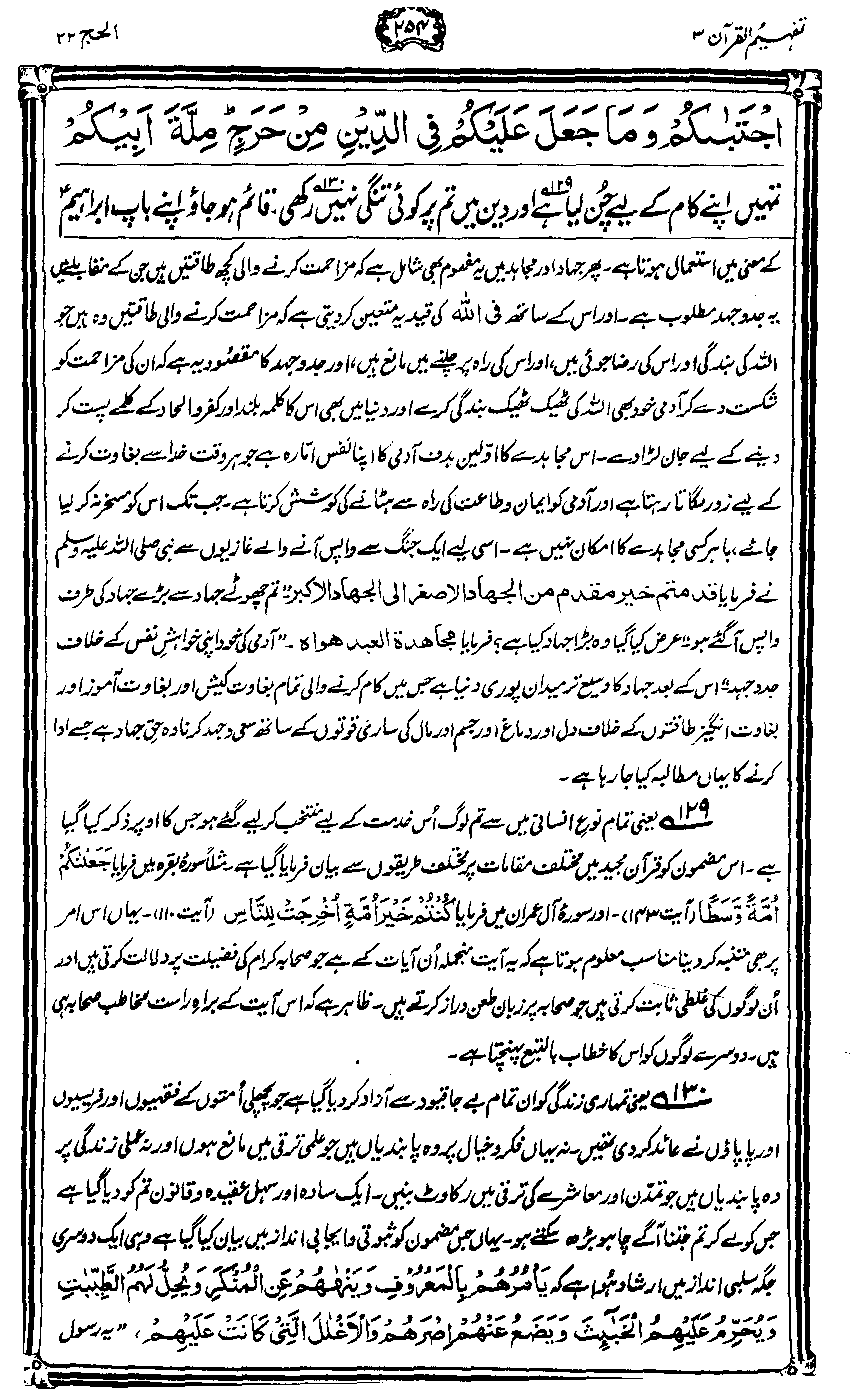 تفہیم القرآن ۳
۲۵۴
الحج ۲۲
اجْتَبٰىكُمْ وَمَا جَعَلَ عَلَيْكُمْ فِي الدِّيْنِ مِنْ حَرَجٍ ؕ مِلَّةَ اَبِيْكُمْ
تمہیں اپنے کام کے لیے چُن لیا ہے۱۲۹ اور دین میں تم پر کوئی تنگی نہیں رکھی۱۳۰۔ قائم ہو جاؤ اپنے باپ ابراہیمؑ
کے معنی میں استعمال ہوتا ہے۔ پھر جہاد اور مجاہدہ میں یہ مفہوم بھی شامل ہے کہ مزاحمت کرنے والی کچھ طاقتیں ہیں جن کے مقابلے میں
یہ جدوجہد مطلوب ہے۔ اور اس کے ساتھ فی اللہ کی قید یہ متعین کر دیتی ہے کہ مزاحمت کرنے والی طاقتیں وہ ہیں جو
اللہ کی بندگی اور اس کی رضا جوئی میں، اور اس کی راہ پر چلنے میں مانع ہیں، اور جدوجہد کا مقصود یہ ہے کہ ان کی مزاحمت کو
شکست دے کر آدمی خود بھی اللہ کی ٹھیک ٹھیک بندگی کرے اور دنیا میں بھی اس کا کلمہ بلند اور کفر و الحاد کے کلمے پست کر
دینے کے لیے جان لڑا دے۔ اس مجاہدے کا اوّلین ہدف آدمی کا اپنا نفس امّارہ ہے جو ہر وقت خدا سے بغاوت کرنے
کے لیے زور لگاتا رہتا ہے اور آدمی کو ایمان و طاعت کی راہ سے ہٹانے کی کوشش کرتا ہے۔ جب تک اس کو مسخر نہ کر لیا
جائے، باہر کسی مجاہدے کا امکان نہیں ہے۔ اسی لیے ایک جنگ سے واپس آنے والے غازیوں سے نبی صلی اللہ علیہ وسلم
نے فرمایا قدمتم خیر مقدم من الجھاد الاصغر الی الجھاد الاکبر "تم چھوٹے جہاد سے بڑے جہاد کی طرف
واپس آ گئے ہو" عرض کیا گیا وہ بڑا جہاد کیا ہے؟ فرمایا مجاھدة العبد ھواہ۔ "آدمی کی خود اپنی خواہشِ نفس کے خلاف
جدوجہد" اس کے بعد جہاد کا وسیع تر میدان پوری دنیا ہے جس میں کام کرنے والی تمام بغاوت کیش اور بغاوت آموز اور
بغاوت انگیز طاقتوں کے خلاف دل اور دماغ اور جسم اور مال کی ساری قوتوں کے ساتھ سعی و جہد کرنا وہ حقِ جہاد ہے جسے ادا
کرنے کا یہاں مطالبہ کیا جا رہا ہے۔
۱۲۹ یعنی تمام نوعِ انسانی میں سے تم لوگ اُس خدمت کے لیے منتخب کر لیے گئے ہو جس کا اوپر ذکر کیا گیا
ہے۔ اس مضمون کو قرآن مجید میں مختلف مقامات پر مختلف طریقوں سے بیان فرمایا گیا ہے۔ مثلاً سورۂ بقرہ میں فرمایا جَعَلْنٰكُمْ
اُمَّةً وَّسَطًا (آیت ۱۴۳)۔ اور سورۂ آل عمران میں فرمایا كُنْتُمْ خَيْرَ اُمَّةٍ اُخْرِجَتْ لِلنَّاسِ (آیت ۱۱۰)۔ یہاں اس امر
پر بھی متنبہ کر دینا مناسب معلوم ہوتا ہے کہ یہ آیت منجملہ اُن آیات کے ہے جو صحابہ کرام کی فضیلت پر دلالت کرتی ہیں اور
اُن لوگوں کی غلطی ثابت کرتی ہیں جو صحابہ پر زبانِ طعن دراز کرتے ہیں۔ ظاہر ہے کہ اس آیت کے براہِ راست مخاطب صحابہ ہی
ہیں۔ دوسرے لوگوں کو اس کا خطاب بالتبع پہنچتا ہے۔
۱۳۰ یعنی تمہاری زندگی کو ان تمام بے جا قیود سے آزاد کر دیا گیا ہے جو پچھلی اُمتوں کے فقیہوں اور فریسیوں
اور پاپاؤں نے عائد کر دی تھیں۔ نہ یہاں فکر و خیال پر وہ پابندیاں ہیں جو علمی ترقی میں مانع ہوں اور نہ عملی زندگی پر
وہ پابندیاں ہیں جو تمدّن اور معاشرے کی ترقی میں رکاوٹ بنیں۔ ایک سادہ اور سہل عقیدہ و قانون تم کو دیا گیا ہے
جس کو لے کر تم جتنا آگے چاہو بڑھ سکتے ہو۔ یہاں جس مضمون کو ثبوتی و ایجابی انداز میں بیان کیا گیا ہے وہی ایک دوسری
جگہ سلبی انداز میں ارشاد ہُوا ہے کہ يَاْمُرُهُمْ بِالْمَعْرُوْفِ وَيَنْهٰهُمْ عَنِ الْمُنْكَرِ وَيُحِلُّ لَهُمُ الطَّيِّبٰتِ
وَيُحَرِّمُ عَلَيْهِمُ الْخَبٰٓئِثَ وَيَضَعُ عَنْهُمْ اِصْرَهُمْ وَالْاَغْلٰلَ الَّتِيْ كَانَتْ عَلَيْهِمْ، "یہ رسول